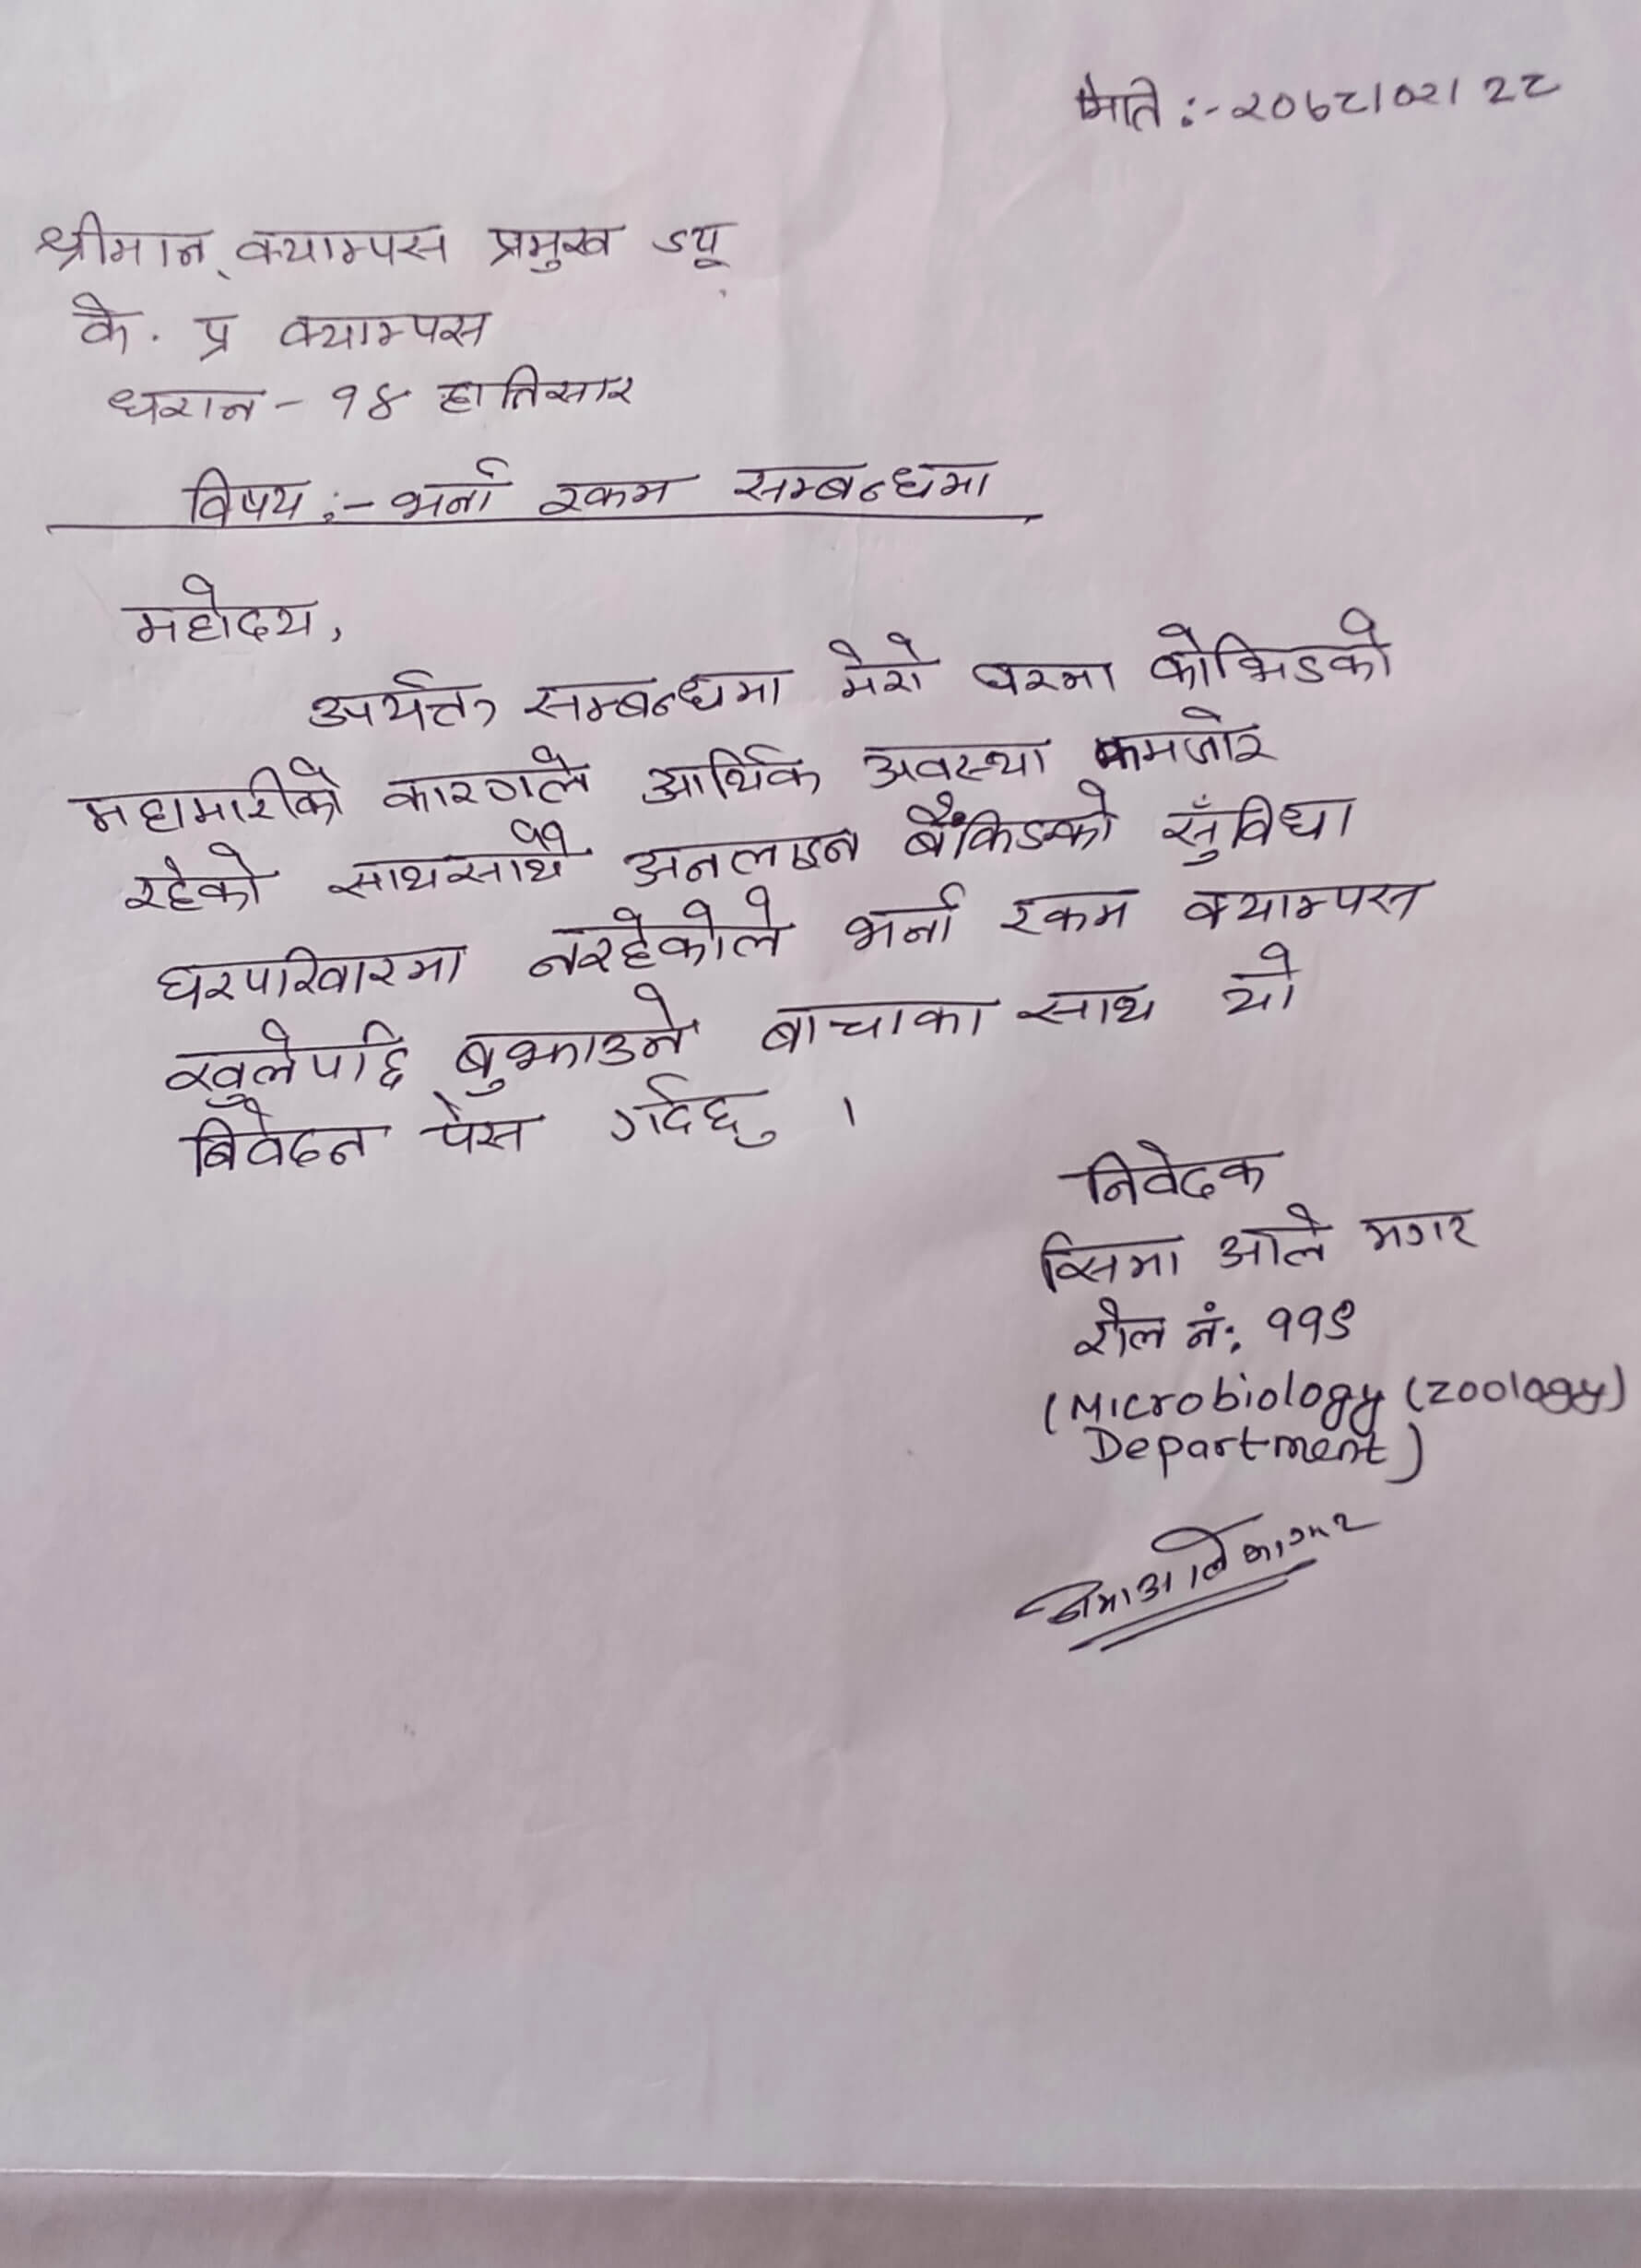 मिति :- २०७८।०२। २८
श्रीमान् क्याम्पस प्रमुख ज्यू
के. प्र क्याम्पस
धरान - १४ हात्तिसार
विषय :- भर्ना रकम सम्बन्धमा
महोदय,
उपर्युक्त सम्बन्धमा मेरो घरमा कोभिडको
महामारीको कारणले आर्थिक अवस्था कमजोर
रहेको साथसाथै अनलाइन बैंकिङको सुँविधा
घरपरिवारमा नरहेकोले भर्ना रकम क्याम्पस
खुलेपछि बुझाउने बाचाका साथ यो
निवेदन पेस गर्दछु ।
निवेदक
सिमा आले मगर
रोल नं: ११९
(Microbiology (zoology)
Department)